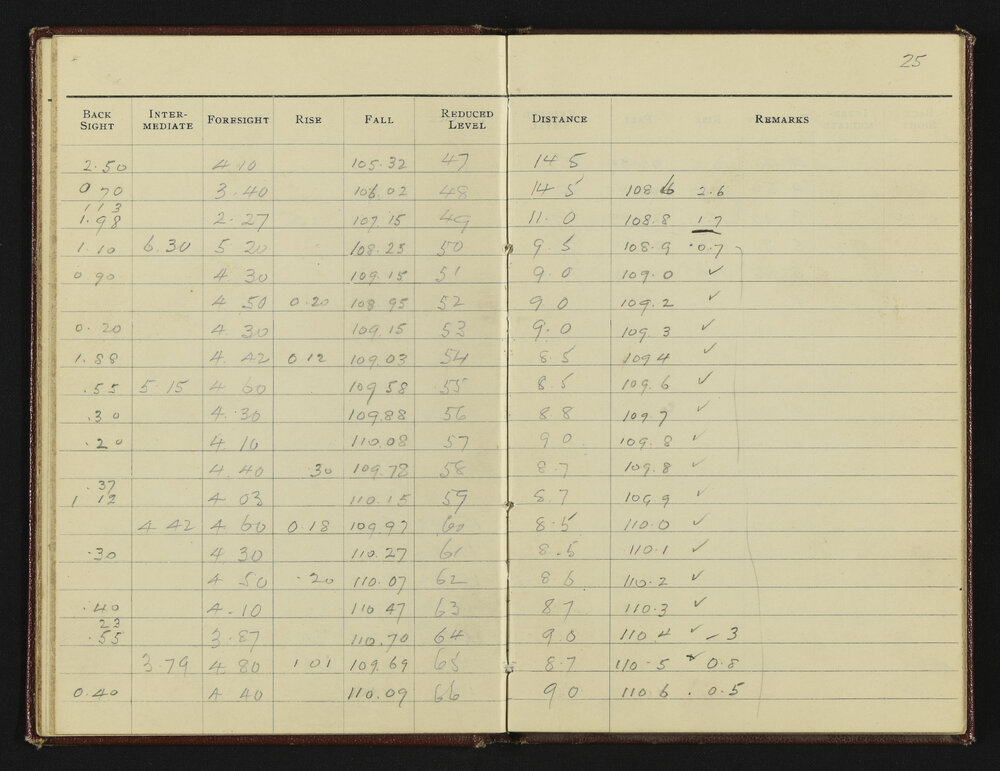 25
BACK SIGHT INTER-MEDIATE FORESIGHT RISE FALL REDUCED LEVEL DISTANCE REMARKS
2.50 4 10 105.32 47 14 5
0 70 3.40 106.02 48 14 5 108 6 2.6
113
1.98 2.27 107.15 49 11.0 108.8 1.7
1.10 6.30 5 20 108.25 50 9.5 108.9 .0.7
0 90 4 30 109.15 51 9.0 109.0 ✓
4.50 0.20 108.95 52 9 0 109.2 ✓
0.20 4 30 109.15 53 9.0 109.3 ✓
1.88 4.42 0 12 109.03 54 8.5 109 4 ✓
.55 5.15 4 60 109 58 55 8.5 109.6 ✓
.30 4.30 109.88 56 8 8 109.7 ✓
.20 4 10 110.08 57 9 0 109.8 ✓
4 40 .30 109.78 58 8.7 109.8 ✓
.37
1 12 4 03 110.15 59 8.7 109.9 ✓
4 42 4 60 0.18 109.97 60 8.5 110.0 ✓
.30 4.30 110.27 61 8.5 110.1 ✓
4 50 .20 110.07 62 8 6 110.2 ✓
.40 4.10 110 47 63 8 7 110.3 ✓
23
.55 3.87 110.70 64 9.0 110.4 ✓ - 3
3.79 4 80 1 01 109.69 65 8.7 110.5 ✓ 0.8
0.40 4 40 110.09 66 9 0 110 6 . 0.5